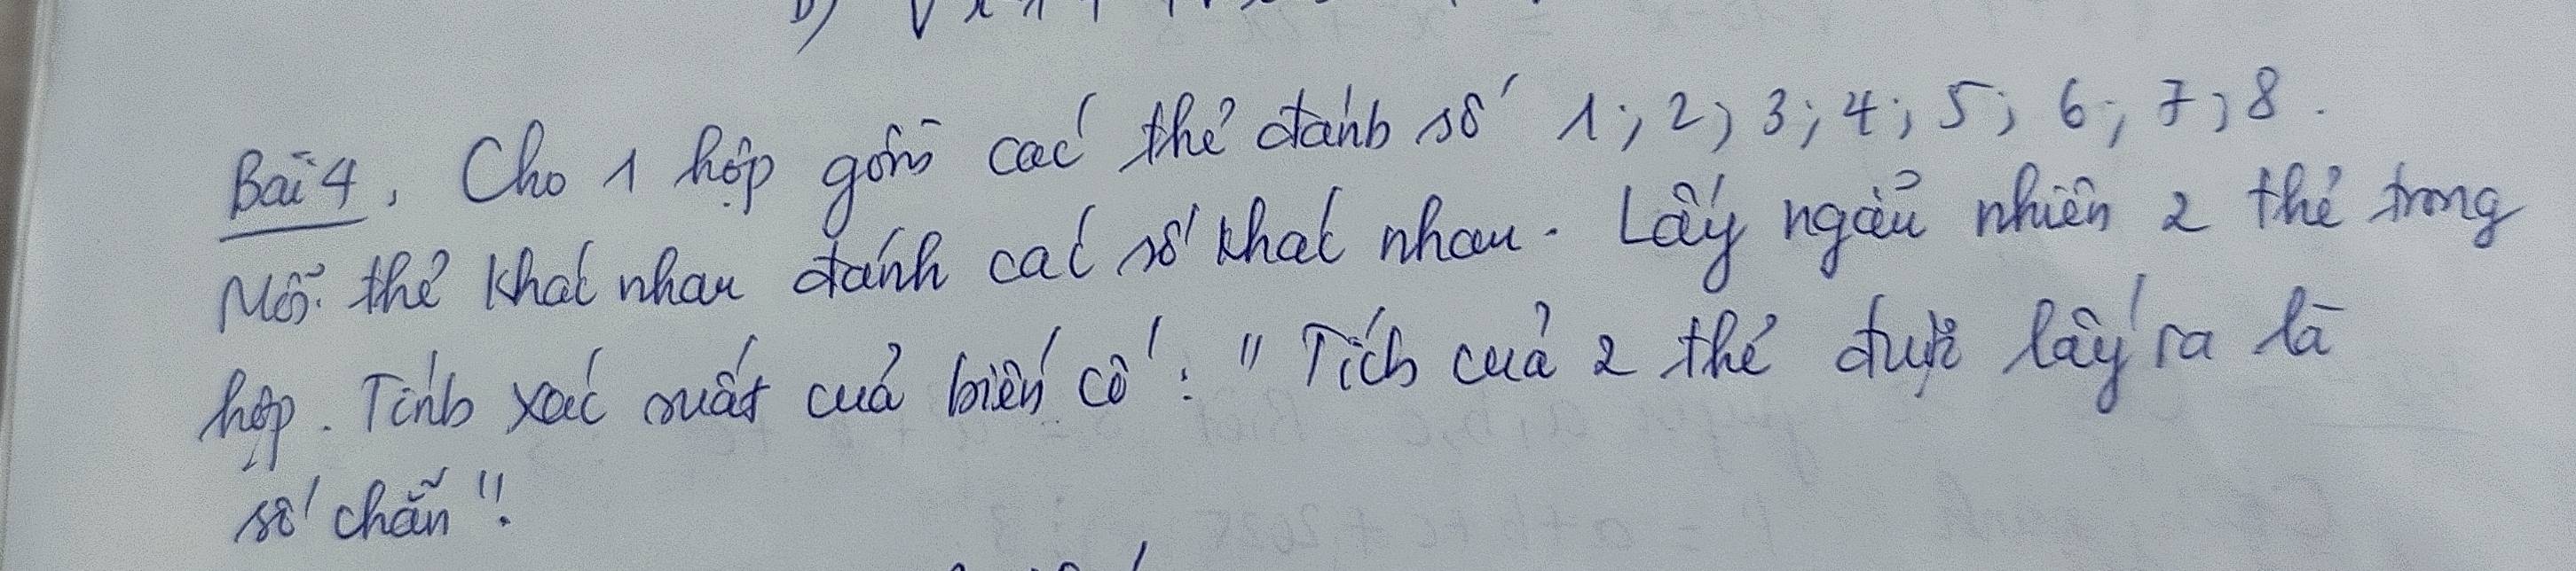 Bài 4, Cho 1 hộp gồm các thẻ đánh số 1; 2; 3; 4; 5; 6; 7; 8.
Mỗi thẻ khác nhau đánh các số khác nhau. Lấy ngẫu nhiên 2 thẻ trong
hộp. Tính xác suất của biến cố: "Tích của 2 thẻ được lấy ra là
số chẵn".